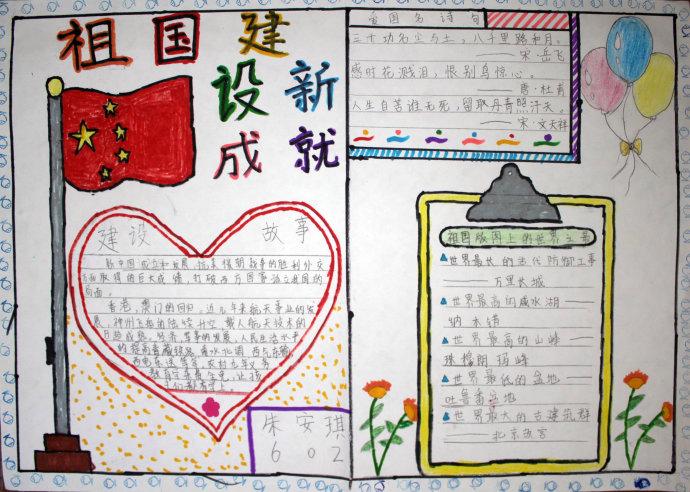 祖国建
设新
成就
爱国名诗句
三十功名尘与土，八千里路和月。
——宋·岳飞
感时花溅泪，恨别鸟惊心。
——唐·杜甫
人生自苦谁无死，留取丹青照汗天。
——宋·文天祥
建设 故事
新中国成立和发展，抗美援朝战争的胜利外交
方面取得的巨大成绩，打破西方国家孤立我国的
局面。
香港，澳门的回归，近几年来航天事业的发
展，神州飞船的陆续升空 载人航天技术的
日趋成熟
人民生活水平
的提高青藏铁路 南水北调 西气东输
朱安琪
602
祖国版图上的世界之最
世界最长的古代防御工事
——万里长城
世界最高的咸水湖——
纳木错
世界最高的山峰——
珠穆朗玛峰
世界最低的盆地——
吐鲁番盆地
世界最大的古建筑群
——北京故宫